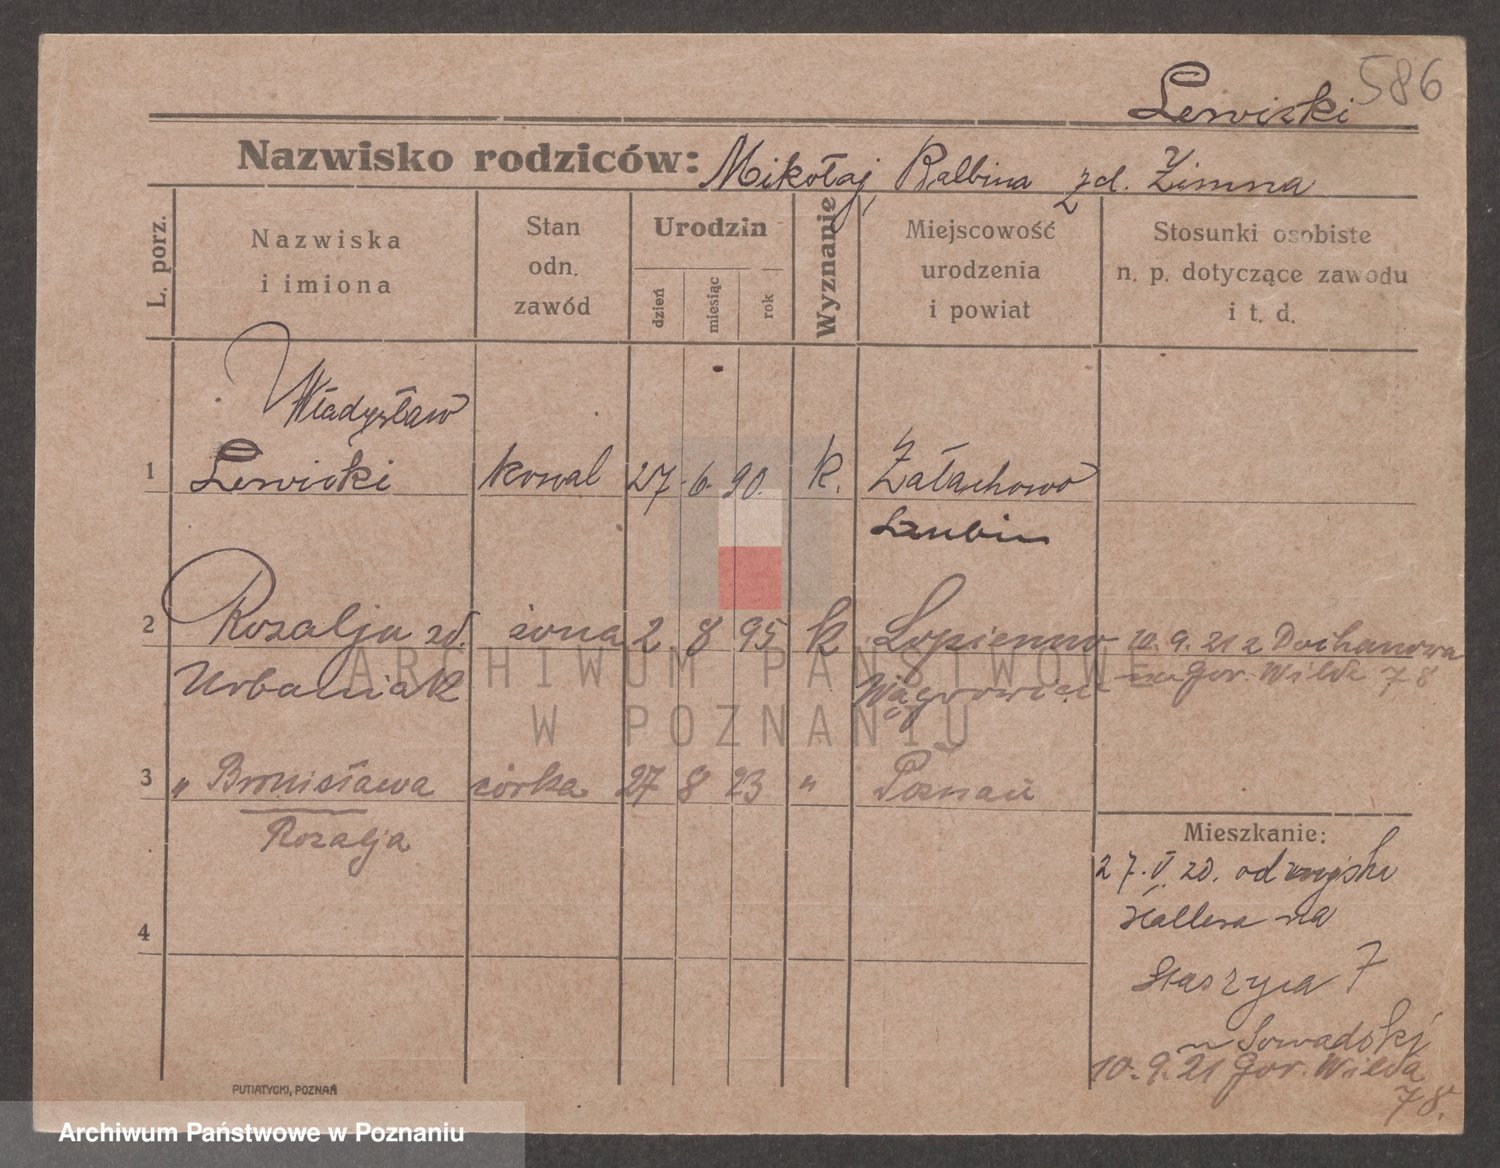 586
Lewicki
Nazwisko rodziców: Mikołaj, Balbina zd. Zimna
L. porz.
Nazwiska i imiona
Stan odn. zawód
Urodzin
dzień
miesiąc
rok
Wyznanie
Miejscowość urodzenia i powiat
Stosunki osobiste n. p. dotyczące zawodu i t. d.
Władysław
1 Lewicki kowal 27. 6. 90. k. Załachowo
Szubin
2 Rozalja zd. żona 2 8 95 k Łopienno 10.9.21 z Dochanowa
Urbaniak Wągrowiec na Gór. Wilda 78
3 " Bronisława córka 27 8 23 " Poznań
Rozalja
Mieszkanie:
27.V.20. od wojska
Hallera na
4
Staszyca 7
u Sowadski
10.9.21 Gór. Wilda
78.
PUTIATYCKI, POZNAŃ
ARCHIWUM PAŃSTWOWE
W POZNANIU
Archiwum Państwowe w Poznaniu